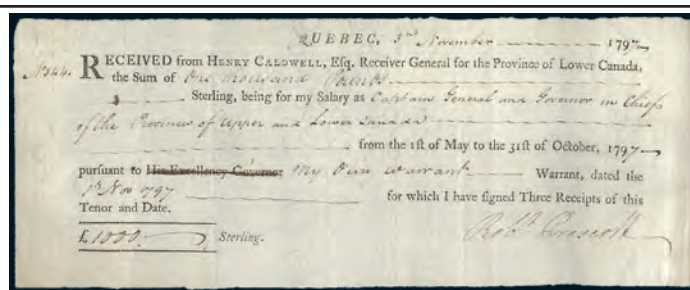 QUEBEC, 3rd November 1797
No 344. RECEIVED from HENRY CALDWELL, Esq. Receiver General for the Province of Lower Canada,
the Sum of One thousand Pounds
Sterling, being for my Salary as Captain General and Governor in Chief
of the Province of Upper and Lower Canada
from the 1st of May to the 31st of October, 1797
pursuant to His Excellency Governor My Own Warrant Warrant, dated the
1st Nov 1797 for which I have signed Three Receipts of this
Tenor and Date.
£1000 Sterling. Robt Prescott